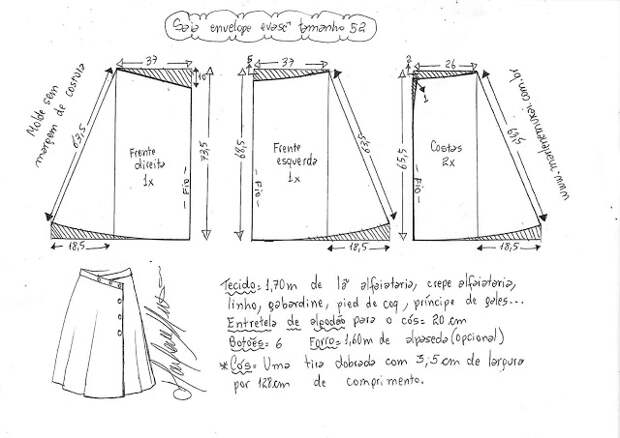 Saia envelope evasê tamanho 52
37
10
63,5
73,5
Molde sem
margem de costura
Frente
direita
1x
Fio
18,5
5
37
68,5
63,5
Frente
esquerda
1x
Fio
18,5
2
26
1
65,5
63,5
Costas
2x
Fio
18,5
www.marlenemukai.com.br
Tecido= 1,70m de lã alfaiataria, crepe alfaiataria,
linho, gabardine, pied de coq, príncipe de gales...
Entretela de algodão para o cós= 20 cm
Botões= 6 Forro= 1,60m de alpaseda (opcional)
*Cós= Uma tira dobrada com 3,5cm de largura
por 128cm de comprimento.